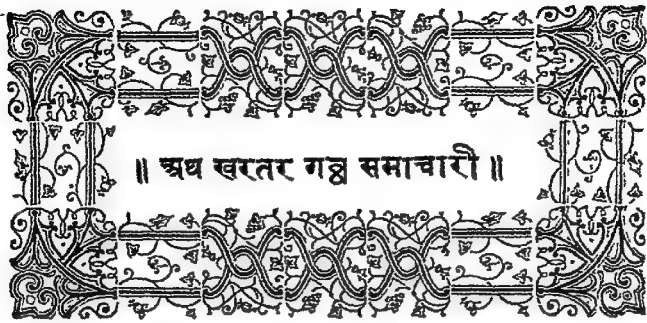 ॥ अथ खरतर गच्छ समाचारी ॥